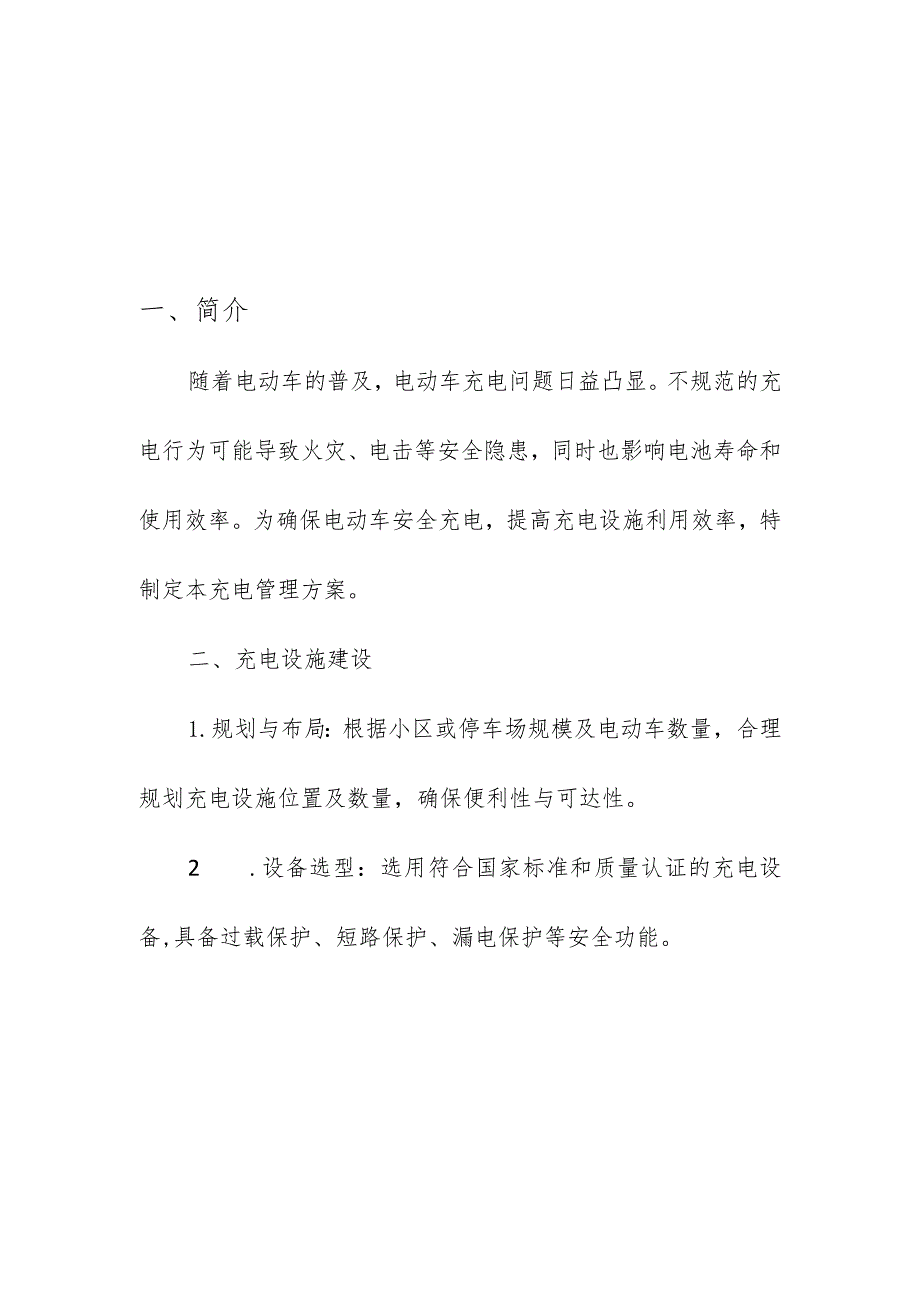 一、简介
随着电动车的普及，电动车充电问题日益凸显。不规范的充
电行为可能导致火灾、电击等安全隐患，同时也影响电池寿命和
使用效率。为确保电动车安全充电，提高充电设施利用效率，特
制定本充电管理方案。
二、充电设施建设
1.规划与布局：根据小区或停车场规模及电动车数量，合理
规划充电设施位置及数量，确保便利性与可达性。
2 .设备选型：选用符合国家标准和质量认证的充电设
备,具备过载保护、短路保护、漏电保护等安全功能。